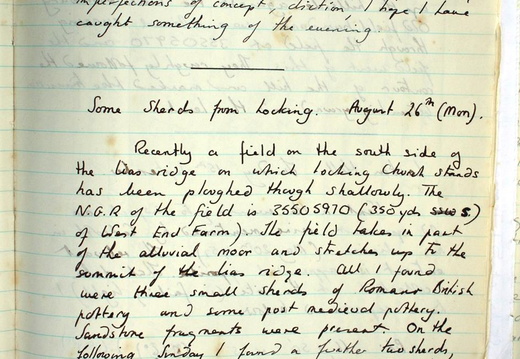 imperfections of concept, diction, I hope I have
caught something of the evening.
Some Sherds from Locking. August 26th (Mon).
Recently a field on the south side of
the lias ridge on which Locking Church stands
has been ploughed though shallowly. The
N.G.R of the field is 35505970 (350 yds S)
of West End Farm). The field takes in part
of the alluvial moor and stretches up to the
summit of the lias ridge. All I found
were three small sherds of Romano British
pottery and some post medieval pottery.
Sandstone fragments were present. On the
following Sunday I found a further two sherds